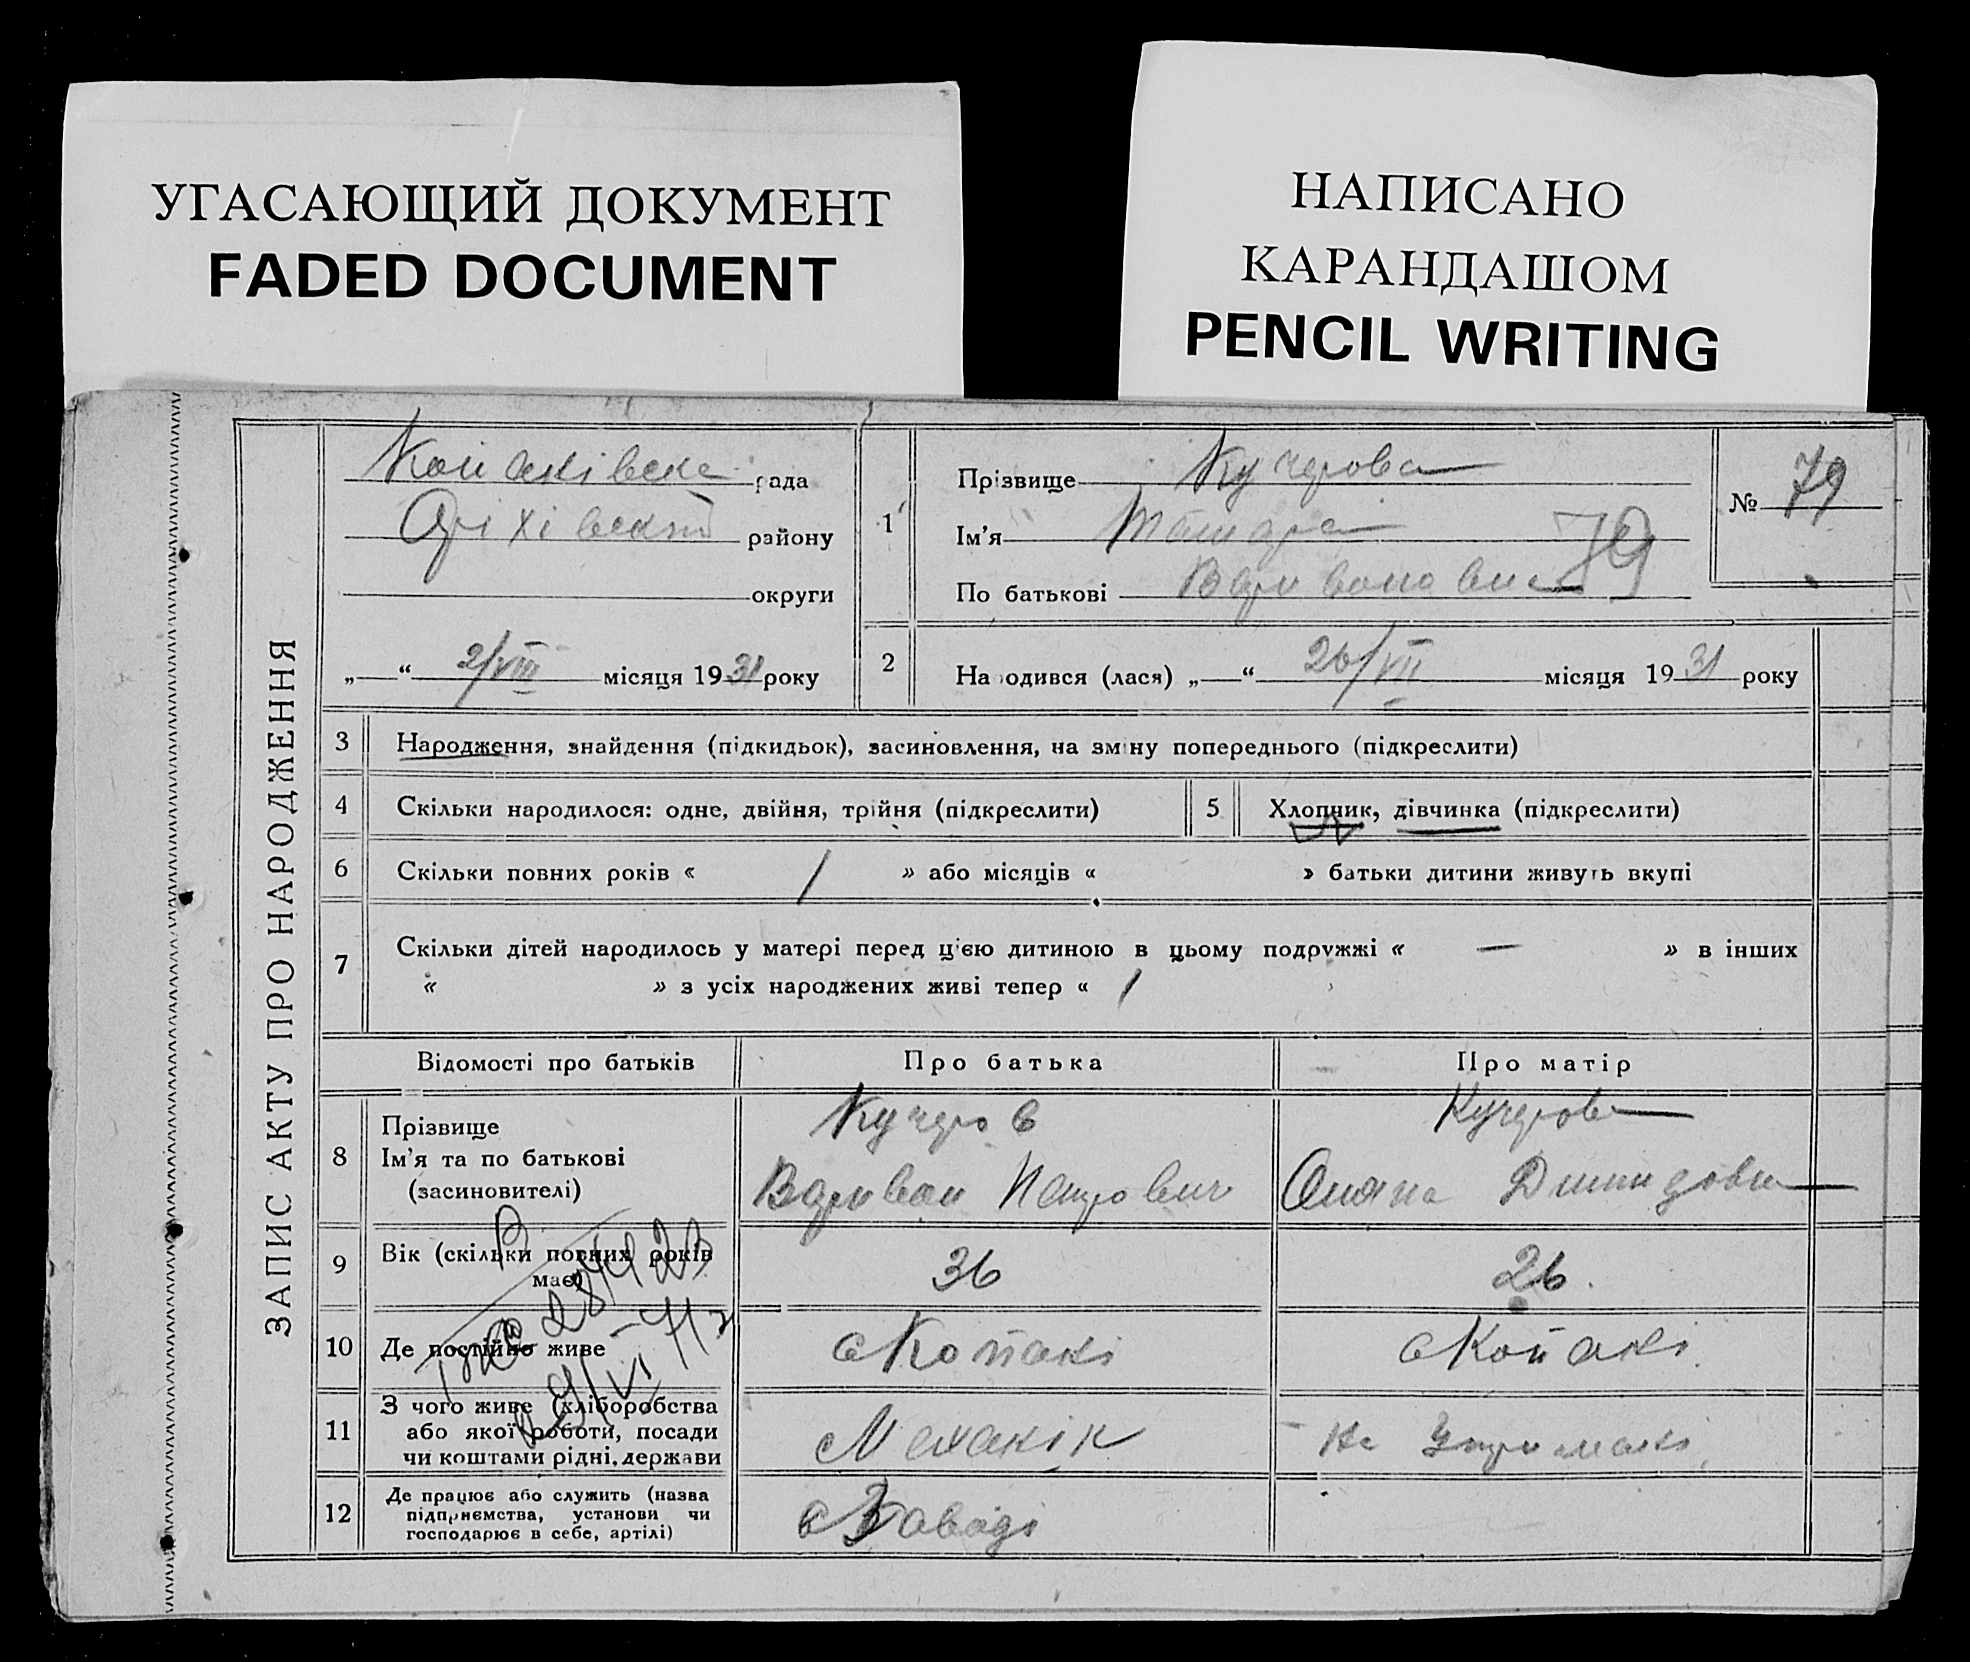 УГАСАЮЩИЙ ДОКУМЕНТ
FADED DOCUMENT
НАПИСАНО
КАРАНДАШОМ
PENCIL WRITING
ЗАПИС АКТУ ПРО НАРОДЖЕННЯ
рада
району
округи
„ “ 2/VIII місяця 1931 року
1
Прізвище Кучерова
Ім'я
По батькові
79
№ 79
2 На одився (лася) „ “ 26/VII місяця 1931 року
3 Народження, знайдення (підкидьок), засиновлення, на зміну попереднього (підкреслити)
4 Скільки народилося: одне, двійня, трійня (підкреслити)
5 Хлопчик, дівчинка (підкреслити)
6 Скільки повних років « / » або місяців « » батьки дитини живуть вкупі
7 Скільки дітей народилось у матері перед цією дитиною в цьому подружжі « — » в інших
« » з усіх народжених живі тепер « /
Відомості про батьків Про батька Про матір
8 Прізвище
Ім'я та по батькові
(засиновителі)
Кучеров
Вариван Петрович
Кучерова
9 Вік (скільки повних років
має)
36
26.
10 Де постійно живе
с Копані
с Копані
11 З чого живе (хліборобства
або якої роботи, посади
чи коштами рідні, держави
Механік
На
12 Де працює або служить (назва
підприємства, установи чи
господарює в себе, артілі)
Заводі